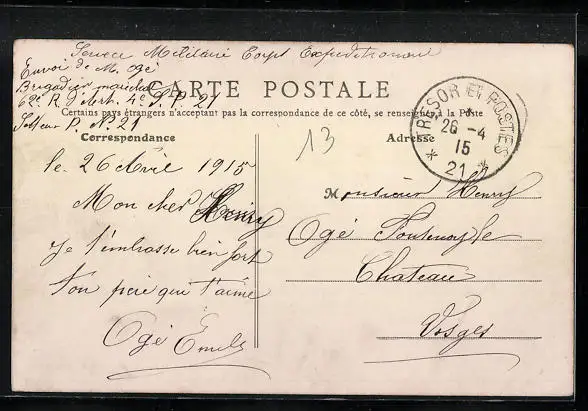 Service Militaire Corps Expéditionnaire
Envoi de M. Ogé
Brigadier maréchal
62e R. d'Art. 4e S. P. 21
Secteur P. N. 21
CARTE POSTALE
Certains pays étrangers n'acceptant pas la correspondance de ce côté, se renseigner à la Poste
Correspondance
Adresse
13
TRESOR ET POSTES
*
26 -4
15
* 21 *
le 26 Avril 1915
Mon cher Henry
Je t'embrasse bien fort
ton père qui t'aime
Ogé Emile
Monsieur Henry
Ogé Fontenoy le
Chateau
Vosges